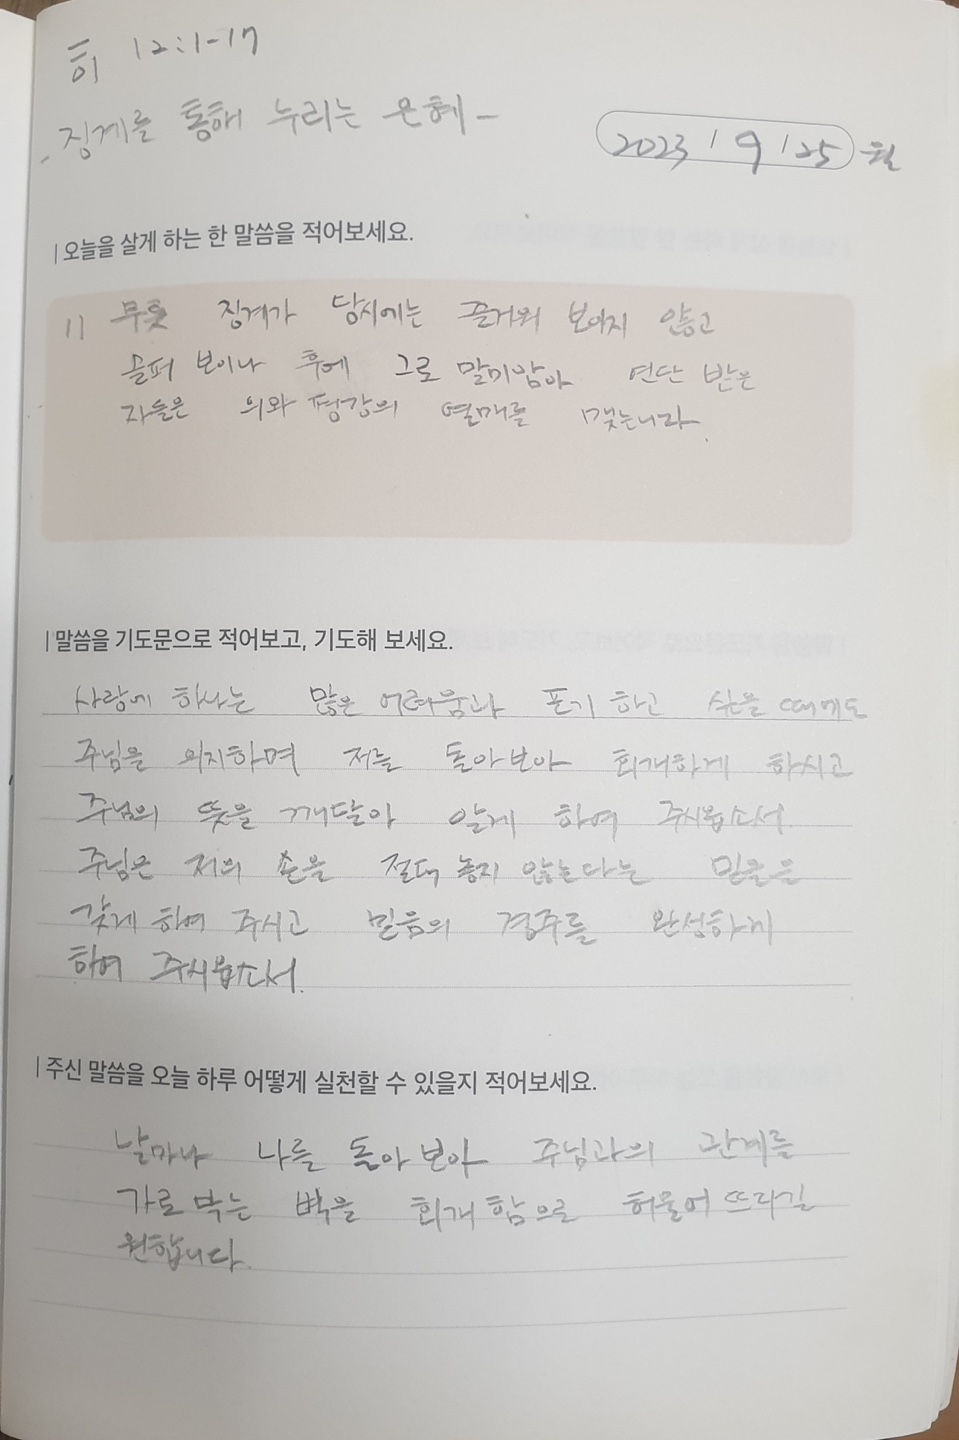 히 12:1-17
- 징계를 통해 누리는 은혜 -
2023/9/25 월
오늘을 살게 하는 한 말씀을 적어보세요.
11 무릇 징계가 당시에는 즐거워 보이지 않고
슬퍼 보이나 후에 그로 말미암아 연단 받은
자들은 의와 평강의 열매를 맺느니라.
말씀을 기도문으로 적어보고, 기도해 보세요.
사랑에 하나는 많은 어려움과 포기 하고 싶을 때에도
주님을 의지하며 저를 돌아보아 회개하게 하시고
주님의 뜻을 깨달아 알게 하여 주시옵소서
주님은 저의 손을 절대 놓지 않는다는 믿음을
갖게 하여 주시고 믿음의 경주를 완성하게
하여 주시옵소서.
주신 말씀을 오늘 하루 어떻게 실천할 수 있을지 적어보세요.
날마다 나를 돌아보아 주님과의 관계를
가로 막는 벽을 회개함으로 허물어 뜨리길
원합니다.